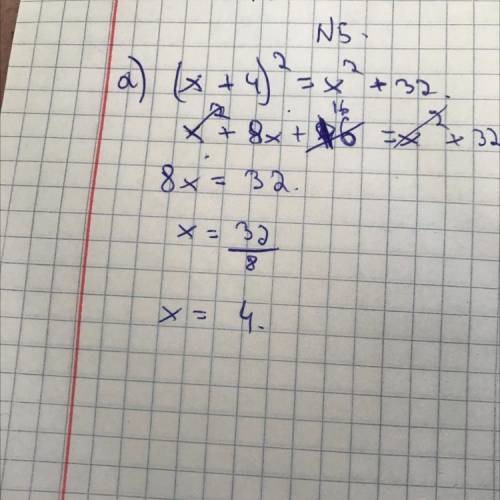 N5.
а) (x + 4)² = x² + 32.
x² + 8x + 16 = x² + 32
8x = 32.
x = 32/8
x = 4.